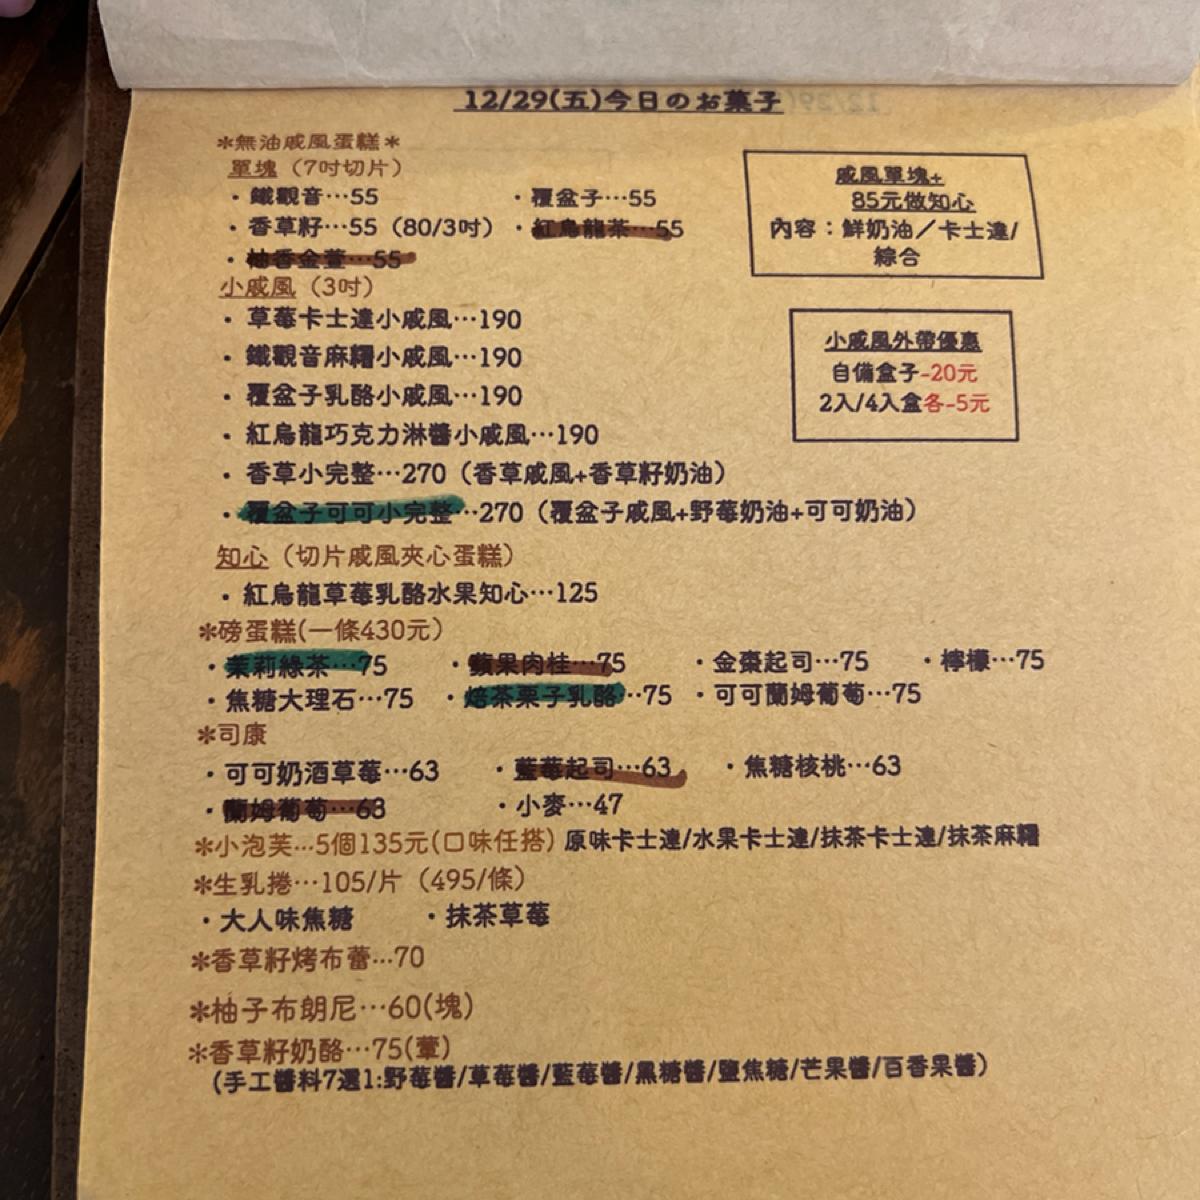 12/29(五)今日のお菓子
＊無油戚風蛋糕＊
單塊（7吋切片）
・鐵觀音…55 ・覆盆子…55
・香草籽…55（80/3吋）・紅烏龍茶…55
・柚香金萱…55
戚風單塊+
85元做知心
內容：鮮奶油／卡士達/
綜合
小戚風（3吋）
・草莓卡士達小戚風…190
・鐵觀音麻糬小戚風…190
・覆盆子乳酪小戚風…190
・紅烏龍巧克力淋醬小戚風…190
・香草小完整…270（香草戚風+香草籽奶油）
・覆盆子可可小完整…270（覆盆子戚風+野莓奶油+可可奶油）
小戚風外帶優惠
自備盒子-20元
2入/4入盒各-5元
知心（切片戚風夾心蛋糕）
・紅烏龍草莓乳酪水果知心…125
＊磅蛋糕(一條430元）
・茉莉綠茶…75 ・蘋果肉桂…75 ・金棗起司…75 ・檸檬…75
・焦糖大理石…75 ・焙茶栗子乳酪…75 ・可可蘭姆葡萄…75
＊司康
・可可奶酒草莓…63 ・藍莓起司…63 ・焦糖核桃…63
・蘭姆葡萄…63 ・小麥…47
＊小泡芙...5個135元(口味任搭) 原味卡士達/水果卡士達/抹茶卡士達/抹茶麻糬
＊生乳捲…105/片（495/條）
・大人味焦糖 ・抹茶草莓
＊香草籽烤布蕾...70
＊柚子布朗尼…60(塊)
＊香草籽奶酪…75(葷)
(手工醬料7選1:野莓醬/草莓醬/藍莓醬/黑糖醬/鹽焦糖/芒果醬/百香果醬）